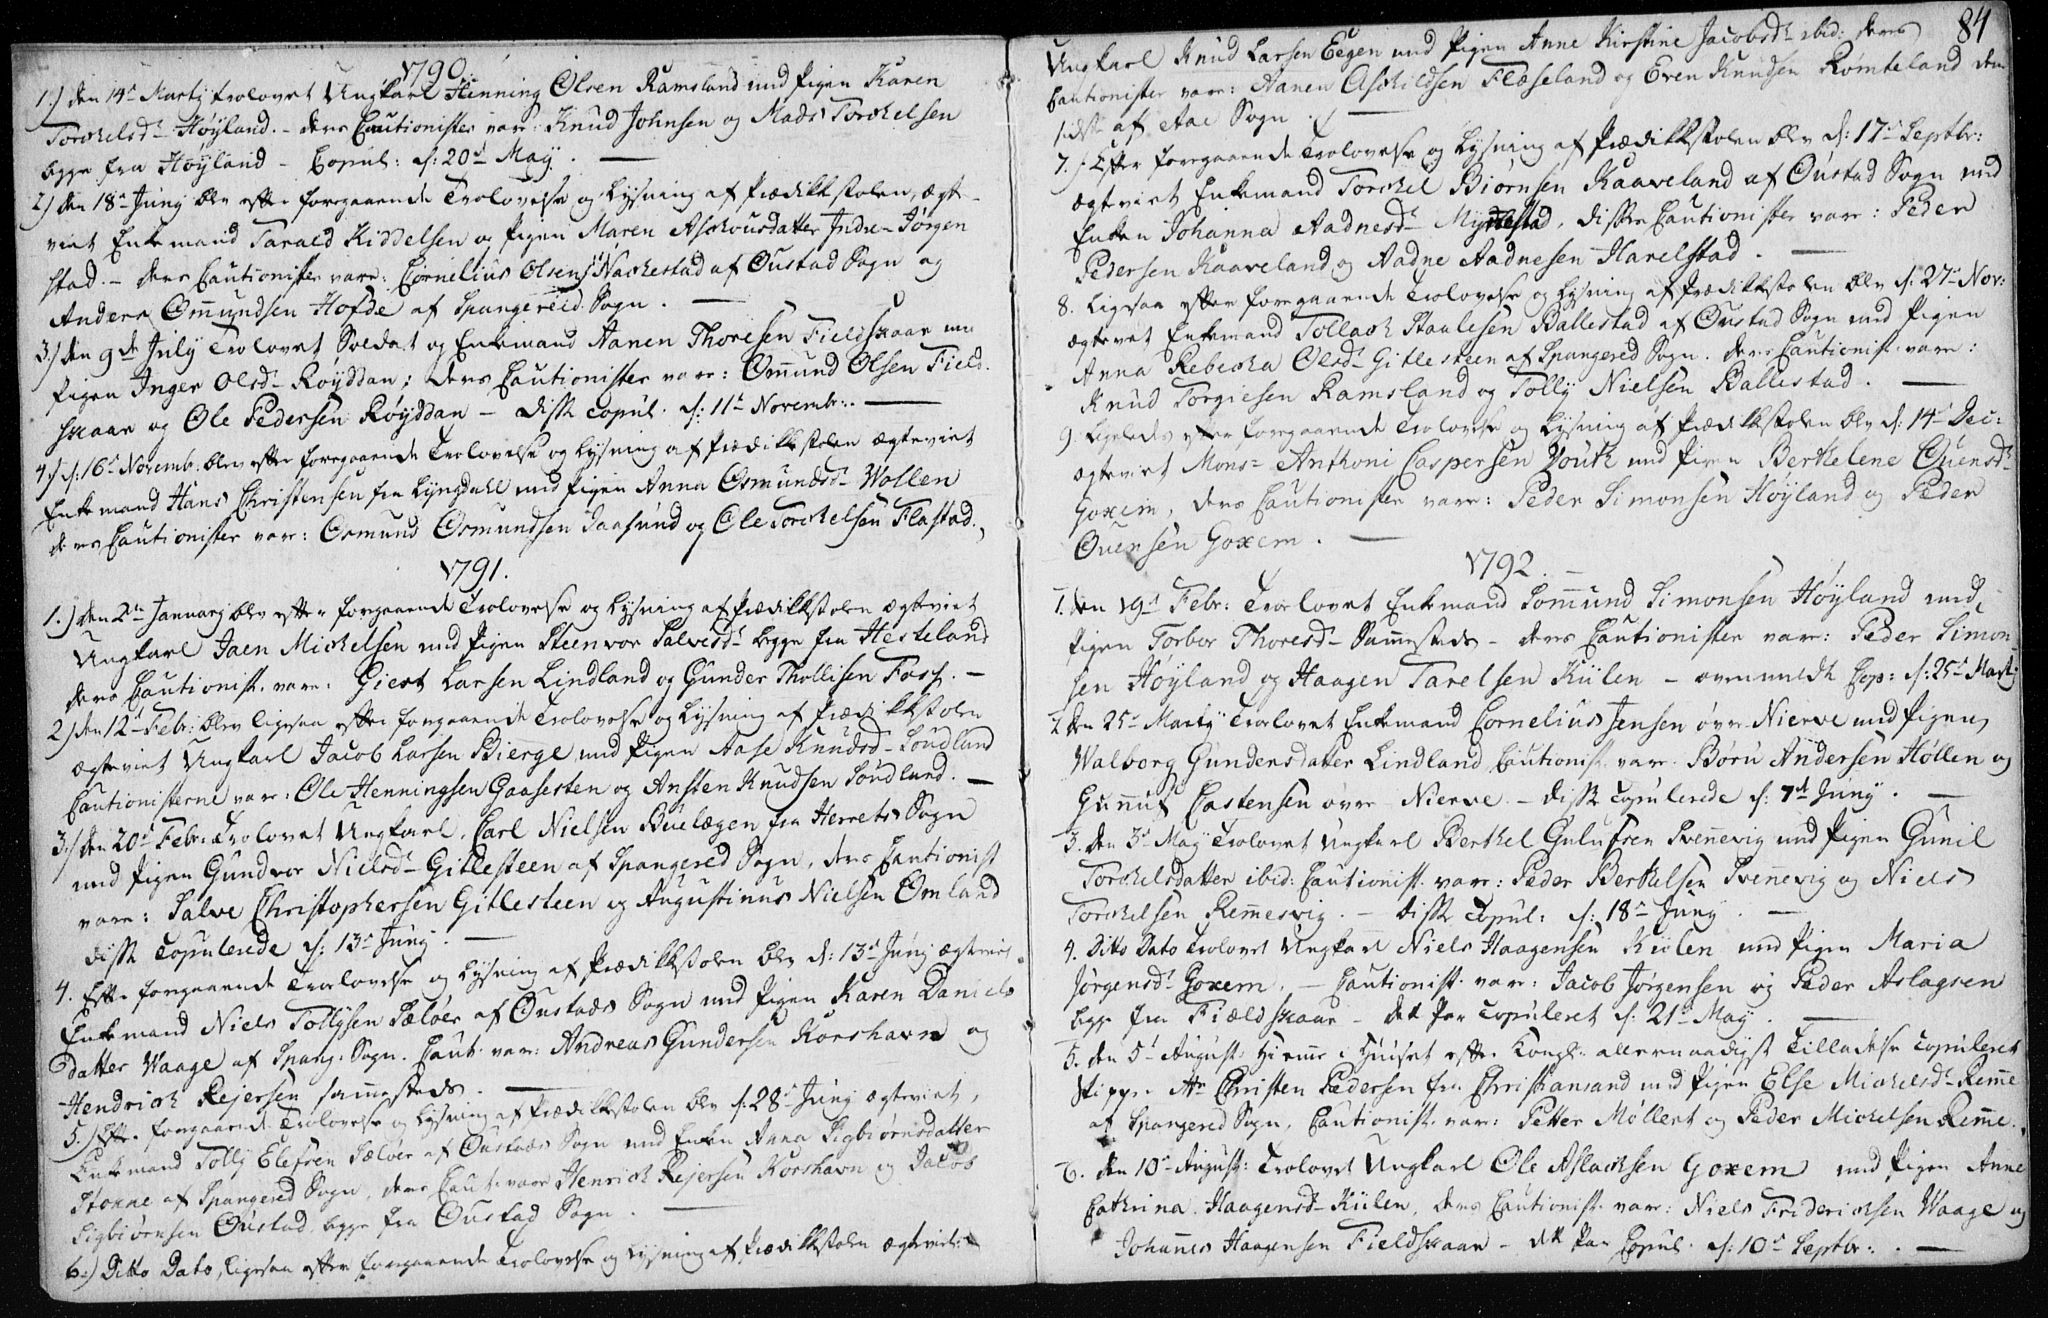 1790
1.) den 14de Martij trolovet Ungkarl Henning Olsen Ramsland med Pigen Karen
Torkelsdr Høyland. - deres Cautionister var: Knud Johnsen og Mads Torckelsen
begge fra Høyland - Copul: d: 20de May. -
2) den 18de Junij blev efter foregaaende Trolovelse og Lysning af Prædikkestolen, ægte-
viet Enkemand Tarald Kiddelsen og Pigen Maren Aschousdatter Indre-Jørgen
stad. - deres Cautionister vare: Cornelius Olsen Nackestad af Oustad Sogn og
Anders Omundsen Hofde af Spangereid Sogn. -
3.) den 9de July Trolovet Soldat og Enkemand Aanen Thoresen Fieldskaar med
Pigen Inger Olsdr Røyddan; deres Cautionister vare: Omund Olsen Field-
skaar og Ole Pedersen Røyddan - disse copul. d: 11te Novembr: -
4.) d: 16de Novemb: blev efter foregaaende Trolovelse og Lysning af Prædikkestolen ægteviet
Enkemand Hans Christensen fra Lyngdahl med Pigen Anna Osmundsdr Wollen
deres Cautionister var: Osmund Osmundsen Jaasund og Ole Torckelsen Flastad.,
1791.
1.) den 2den January blev efter foregaaende Trolovelse og Lysning af Prædikkestolen ægteviet
Ungkarl Jaen Mickelsen med Pigen Steenvor Salvesdr begge fra Hesteland
deres Cautionist. vare: Giert Larsen Lindland og Gunder Thollisen Foss. -
2) den 12te Febr: blev ligesaa efter foregaaende Trolovelse og Lysning af Prædikkestolen
ægteviet Ungkarl Jacob Larsen Bierge med Pigen Aase Knudsdr Loudland
Cautionisterne var: Ole Henningsen Gaasesten og Ansten Knudsen Loudland. -
3.) den 20de Febr: Trolovet Ungkarl. Carl Nielsen Buelægen fra Herrets Sogn
med Pigen Gundvor Nielsdr Gitlesteen af Spangered Sogn, deres Cautionist
vare: Salve Christophersen Gitlesteen og Augustinus Nielsen Omland
disse Copulerede d: 13de Junij. -
4. Efter foregaaende Trolovelse og Lysning af Prædikkestolen blev d: 13de Junij ægteviet
Enkemand Niels Tollysen Sæløer af Oustads Sogn med Pigen Karen Daniels
datter Waage af Spang: Sogn. Caut. var: Andreas Gundersen Korshavn og
Hendrich Rejersen sammesteds. -
5.) Efter foregaaende Trolovelse og Lysning af Prædikkestolen blev d: 28de Junij ægteviet,
Enkemand Tolly Elefsen Sæløer af Oustads Sogn med Enken Anna Sigbiørnsdatter
Stokne af Spangered Sogn, deres Caut. vare Henrich Rejersen Korshavn og Jacob
Sigbiørnsen Oustad begge fra Oustad Sogn. -
6.) Ditto Dato, ligesaa efter foregaaende Trolovelse og Lysning af Prædikkestolen ægteviet
84
Ungkarl Knud Larsen Eegen med Pigen Anne Kirstine Jacobsdr ibid: deres
Cautionister vare: Aanen Aschildsen Flaseland og Even Knudsen Romteland den
sidste af Aae Sogn. -
7.) Efter foregaaende Trolovelse og Lysning af Prædikkestolen blev d: 17de Septbr:
ægteviet Enkemand Torckel Biørnsen Kaaveland af Oustad Sogn med
Enken Johanna Aadnesdr Myrstad, disses Cautionister vare: Peder
Pedersen Kaaveland og Aadne Aadnesen Harelstad. -
8. Ligesaa efter foregaaende Trolovelse og Lysning af Prædikkestolen blev d: 27de Nov:
ægteviet Enkemand Tollack Staalesen Ballestad af Oustad Sogn med Pigen
Anna Rebecka Olsdr Gitlesteen af Spangered Sogn. deres Cautionist. vare:
Knud Torgiesen Ramsland og Tolly Nielsen Ballestad. -
9. Ligeledes efter foregaaende Trolovelse og Lysning af Prædikkestolen blev d: 14de Dec:
ægteviet Monsr Anthoni Caspersen Youtk med Pigen Berthelene Ouensdr
Goxem, deres Cautionister vare: Peder Simonsen Høyland og Peder
Ouensen Goxem. -
1792. -
1. den 19de Febr: Trolovet Enkemand Sommund Simonsen Høyland med
Pigen Torbor Thoresdr Sammesteds - deres Cautionister vare: Peder Simon-
sen Høyland og Haagen Tarelsen Kiilen - ovenmeldte Cop: d: 25de Martij
2 den 25de Martij Trolovet Enkemand Cornelius Jensen øvre Nierve med Pigen
Walborg Gundersdatter Lindland Cautionist. var. Børu Andersen Høllen og
Gunnuf Castensen øvre - Nierve. - disse Copulerede d: 7de Junij. -
3. den 3de May Trolovet Ungkarl Berthel Gulufsen Svennevig med Pigen Gunil
Torckelsdatter ibid: Cautionist. vare: Peder Berthelsen Svennevig og Niels
Torckelsen Remmesvig. - disse Copul: d: 18de Junij. -
4. Ditto Dato Trolovet Ungkarl Niels Haagensen Kiilen med Pigen Maria
Jørgensdr Goxem. - Cautionist. var: Jacob Jørgensen og Peder Aslagsen
begge fra Fieldskaar - dett Par Copuleret d: 21de May. -
5. den 5te August: hiemme i Huuset efter Kongl: allernaadigst Tilladelse Copuleret
Skipper Hr Christen Pedersen fra Christiansand med Pigen Else Mickelsdr Remme
af Spangered Sogn, Cautionist. var: Petter Møllert og Peder Mickelsen Remme.
6. den 10de August: Trolovet Ungkarl Ole Aslacksen Goxem med Pigen Anne
Cathrina Haagensdr Kiilen, deres Cautionist. vare: Niels Fridericksen Waage og
Johannes Haagensen Fieldskaar - dett Par Copul. d: 10de Septbr: . -